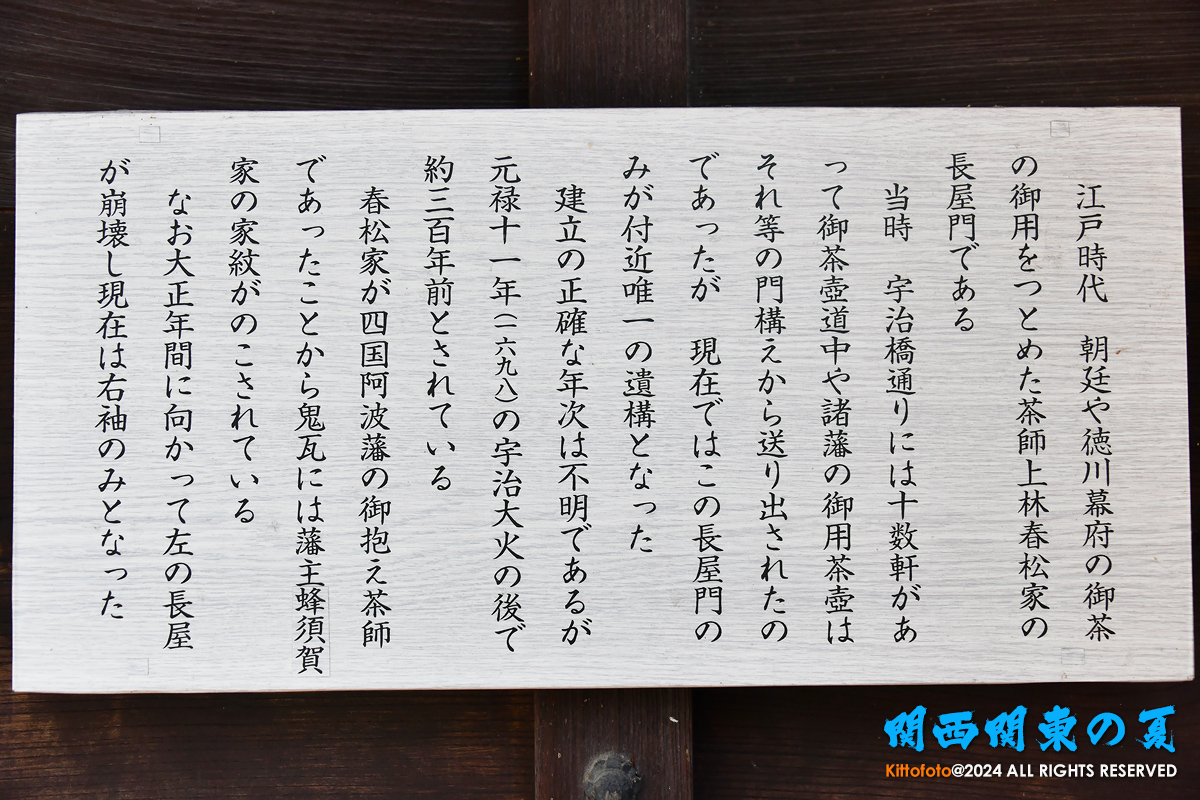 江戸時代　朝廷や徳川幕府の御茶
の御用をつとめた茶師上林春松家の
長屋門である
当時　宇治橋通りには十数軒があ
って御茶壺道中や諸藩の御用茶壺は
それ等の門構えから送り出されたの
であったが　現在ではこの長屋門の
みが付近唯一の遺構となった
建立の正確な年次は不明であるが
元禄十一年(一六九八)の宇治大火の後で
約三百年前とされている
春松家が四国阿波藩の御抱え茶師
であったことから鬼瓦には藩主蜂須賀
家の家紋がのこされている
なお大正年間に向かって左の長屋
が崩壊し現在は右袖のみとなった
関西関東の夏
Kittofoto@2024 ALL RIGHTS RESERVED